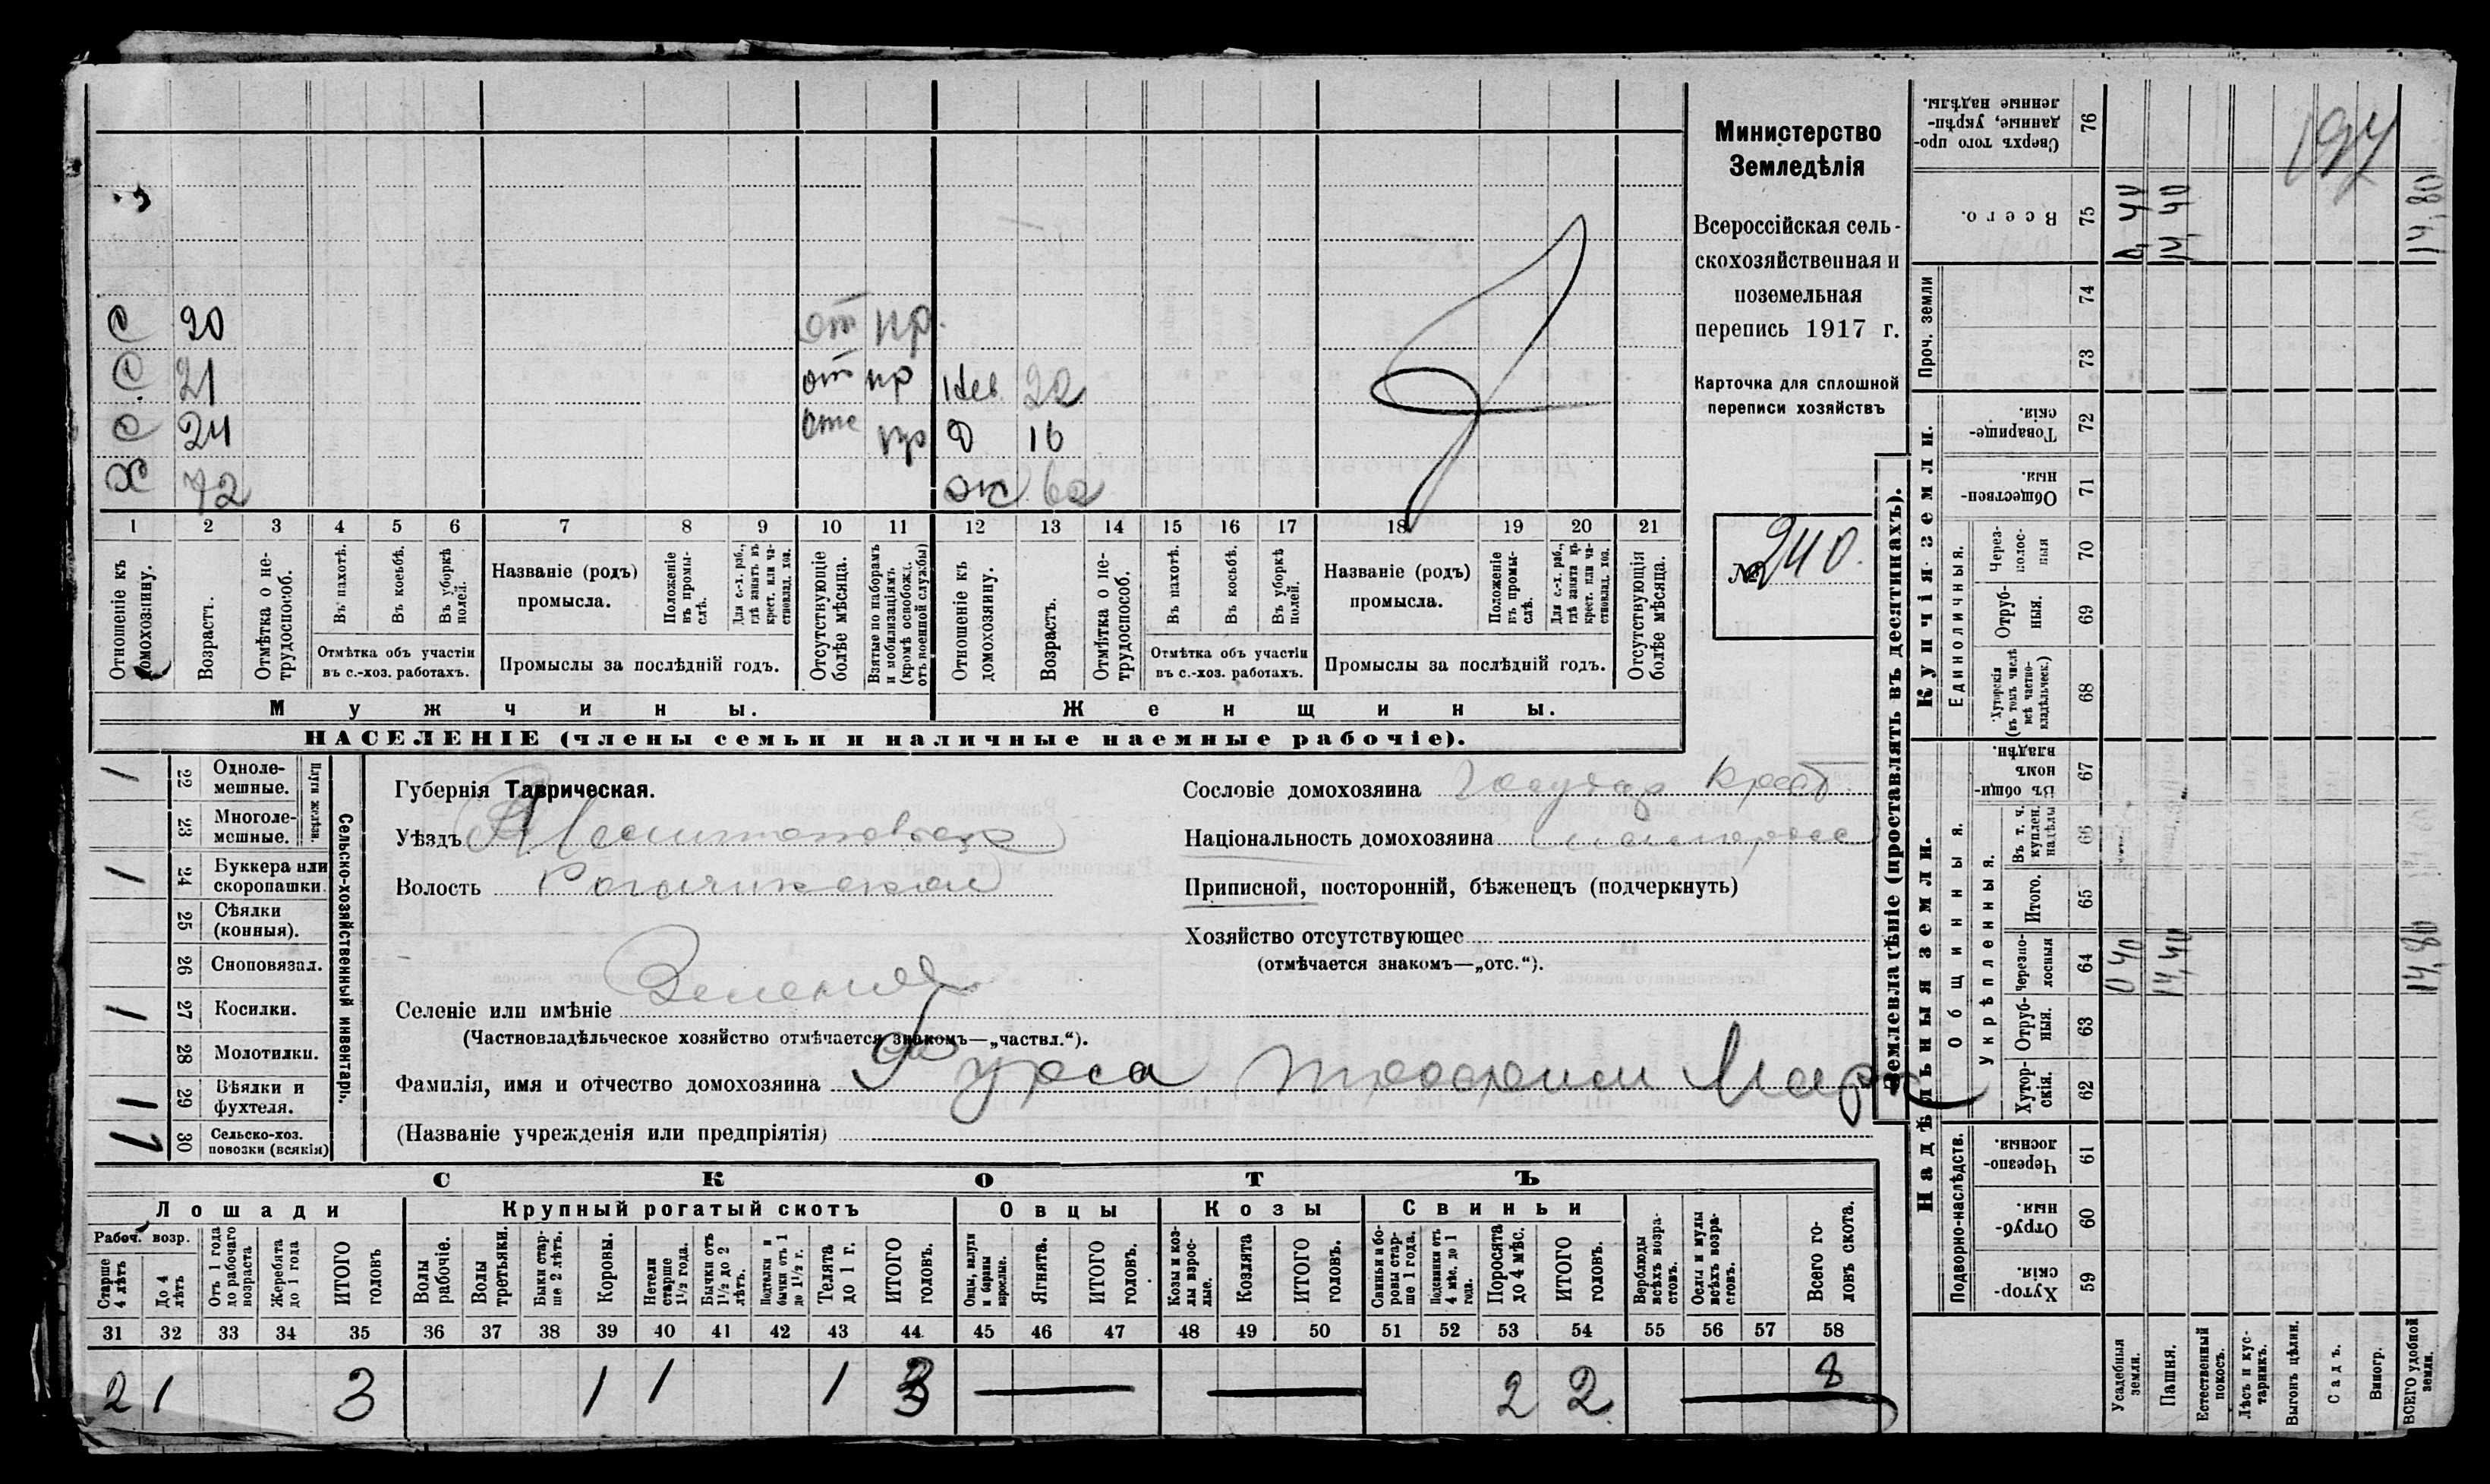 С 20 от пр.
С 21 от пр нев 22
С 24 отс пр д 16
Х 72 ж 62
1 2 3 4 5 6 7 8 9 10 11 12 13 14 15 16 17 18 19 20 21
Отношеніе къ домохозяину.
Возрастъ.
Отмѣтка о не-
трудоспособ.
Въ пахотѣ.
Въ косьбѣ.
Въ уборкѣ
полей.
Отмѣтка объ участіи
въ с.-хоз. работахъ.
Названіе (родъ)
промысла.
Положеніе
въ промы-
слѣ.
Для с.-х. раб.,
гдѣ занятъ въ
крест. или ча-
стновлад. хоз.
Промыслы за послѣдній годъ.
Отсутствующіе
болѣе мѣсяца.
Взятые по наборамъ
и мобилизаціямъ
(кромѣ освобожд.
отъ военной службы)
Отношеніе къ
домохозяину.
Возрастъ.
Отмѣтка о не-
трудоспособ.
Въ пахотѣ.
Въ косьбѣ.
Въ уборкѣ
полей.
Отмѣтка объ участіи
въ с.-хоз. работахъ.
Названіе (родъ)
промысла.
Положеніе
въ промы-
слѣ.
Для с.-х. раб.,
гдѣ занята въ
крест. или ча-
стновлад. хоз.
Промыслы за послѣдній годъ.
Отсутствующія
болѣе мѣсяца.
Мужчины.
Женщины.
НАСЕЛЕНІЕ (члены семьи и наличные наемные рабочіе).
Министерство
Земледѣлія
Всероссійская сель-
скохозяйственная и
поземельная
перепись 1917 г.
Карточка для сплошной
переписи хозяйствъ
№ 240.
1 22 Одноле-
мешные.
23 Многоле-
мешные.
Плуги желѣзн.
1 24 Буккера или
скоропашки
25 Сѣялки
(конныя).
26 Сноповязал.
1 27 Косилки.
28 Молотилки.
1 29 Вѣялки и
фухтеля.
1 30 Сельско-хоз.
повозки (всякія)
Сельско-хозяйственный инвентарь.
Губернія Таврическая.
Уѣздъ Мелитопольскій
Волость Рогачикская
Селеніе или имѣніе Зеленая
(Частновладѣльческое хозяйство отмѣчается знакомъ—„частвл.“).
Фамилія, имя и отчество домохозяина Гурса Трофим Марк
(Названіе учрежденія или предпріятія)
Сословіе домохозяина Государ Крест.
Національность домохозяина малоросс
Приписной, посторонній, бѣженецъ (подчеркнуть)
Хозяйство отсутствующее
(отмѣчается знакомъ—„отс.“).
СКОТЪ
Лошади
Крупный рогатый скотъ
Овцы
Козы
Свиньи
Рабоч. возр.
Старше
4 лѣтъ
До 4
лѣтъ
Отъ 1 года
до рабочаго
возраста
Жеребята
до 1 года
ИТОГО
головъ
Волы
рабочіе.
Волы
третьяки.
Быки стар-
ше 2 лѣтъ.
Коровы.
Нетели
старше
1½ года.
Бычки отъ
1½ до 2
лѣтъ.
Подтелки и
бычки отъ 1
до 1½ г.
Телята
до 1 г.
ИТОГО
головъ.
Овцы, валухи
и бараны
взрослые.
Ягнята.
ИТОГО
головъ.
Козы и коз-
лы взрос-
лые.
Козлята
ИТОГО
головъ.
Свиньи и бо-
ровы стар-
ше 1 года.
Подсвинки отъ
4 мѣс. до 1
года.
Поросята
до 4 мѣс.
ИТОГО
головъ.
Верблюды
всѣхъ возра-
стовъ.
Ослы и мулы
всѣхъ возра-
стовъ.
Всего го-
ловъ скота.
31 32 33 34 35 36 37 38 39 40 41 42 43 44 45 46 47 48 49 50 51 52 53 54 55 56 57 58
2 1 3 1 1 1 3 2 2 8
Землевладѣніе (проставлять въ десятинахъ).
Надѣльныя земли.
Купчія земли.
Проч. земли
Подворно-наслѣдств.
Общинныя.
Укрѣпленныя.
Единоличныя.
59 Хутор-
скія.
60 Отруб-
ныя.
61 Черезпо-
лосныя.
62 Хутор-
скія.
63 Отруб-
ныя.
64 Черезпо-
лосныя
65 Итого.
66 Въ т. ч.
куплен.
надѣлы
67 Въ общин-
номъ
владѣн.
68 Хуторскія
(въ томъ числѣ
всѣ частно-
владѣльческ.)
69 Отруб-
ныя.
70 Через-
полос-
ныя
71 Обществен-
ныя.
72 Товарище-
скія.
73
74
75 Всего.
76 Сверхъ того про-
данные, укрѣп-
ленные надѣлы.
Усадебныя
земли.
Пашня.
Естественный
покосъ.
Лѣсъ и кус-
тарникъ.
Выгонъ цѣлин.
Садъ.
Виногр.
ВСЕГО удобной
земли.
0 40
14,40
14,80
0,40
14,40
14,80
197